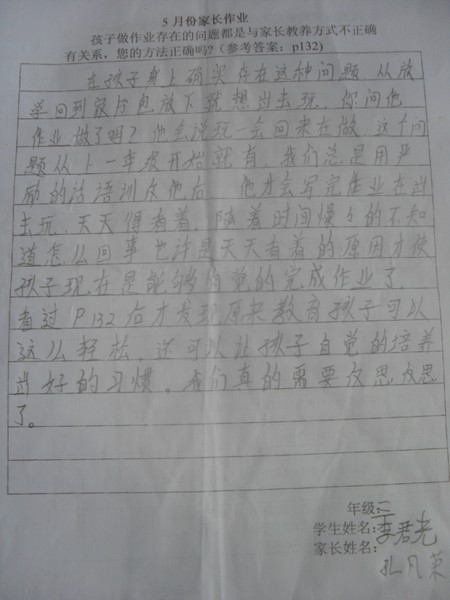 5月份家长作业
孩子做作业存在的问题都是与家长教养方式不正确
有关系,您的方法正确吗?(参考答案:p132)
在孩子身上确实存在这种问题.从放
学回到家书包放下就想出去玩.你问他
作业做了吗?他会说玩一会回来在做.这个问
题从上一年级开始就有.我们总是用严
厉的话语训斥他后.他才会写完作业在出
去玩.天天得看着.随着时间慢慢的不知
道怎么回事也许是天天看着的原因才使
孩子现在是能够自觉的完成作业了.
看过P132后才发现原来教育孩子可以
这么轻松.还可以让孩子自觉的培养
出好的习惯。我们真的需要反思反思
了。
年级:三
学生姓名:李君光
家长姓名:
孔凡荣